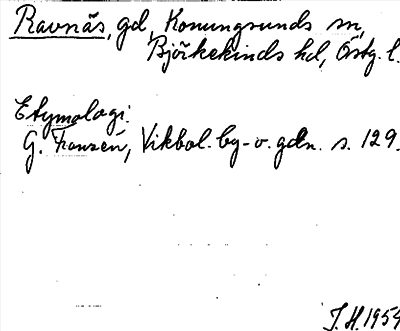 Ravnäs, gd, Konungsunds sn,
Björkekinds hd, Östg. l.
Etymologi:
G. Franzén, Vikbol. by- o. gdn. s. 129.
J.H. 1954